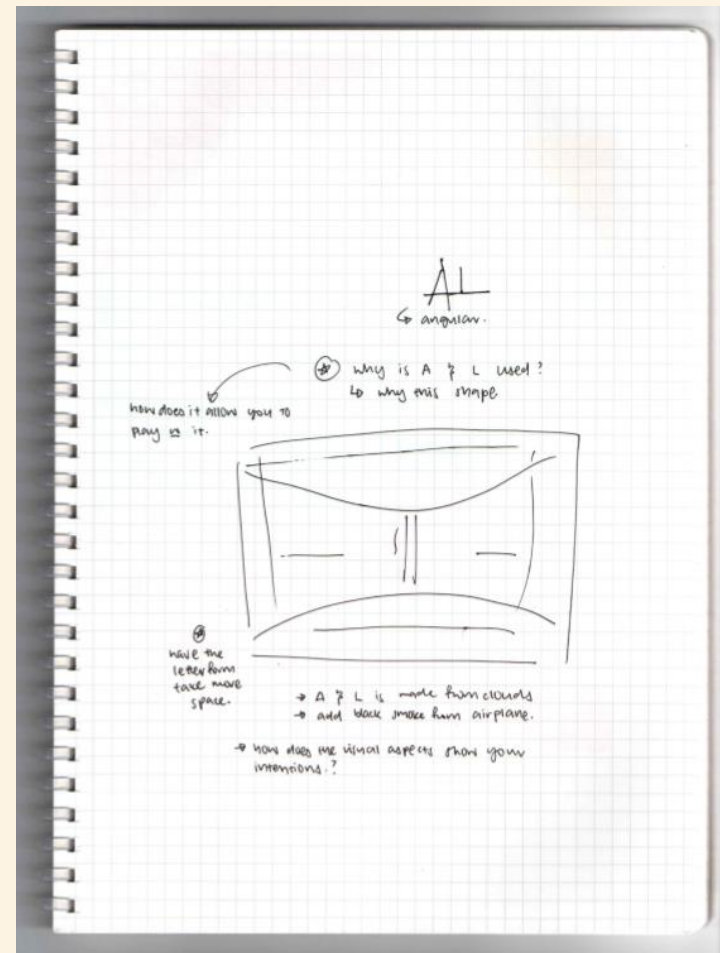 AL
↳ angular.
why is A & L used?
↳ why this shape
how does it allow you to
play w it.
have the
letter form
take more
space.
→ A & L is made from clouds
→ add black smoke from airplane.
→ how does the visual aspects show your
intentions.?